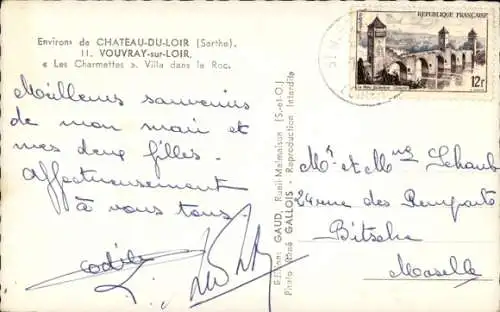 Environs de CHATEAU-DU-LOIR (Sarthe).
11. VOUVRAY-sur-LOIR.
« Les Charmettes ». Villa dans le Roc.
Meilleurs souvenirs
de mon mari et
mes deux filles.
Affectueusement
à vous tous.
Odile
Editions GAUD, Rueil-Malmaison (S.-et-O.)
Photo GALLOIS - Reproduction Interdite
REPUBLIQUE FRANÇAISE
12F
Mr et Mme Schaub
24 rue des Remparts
Bitche
Moselle